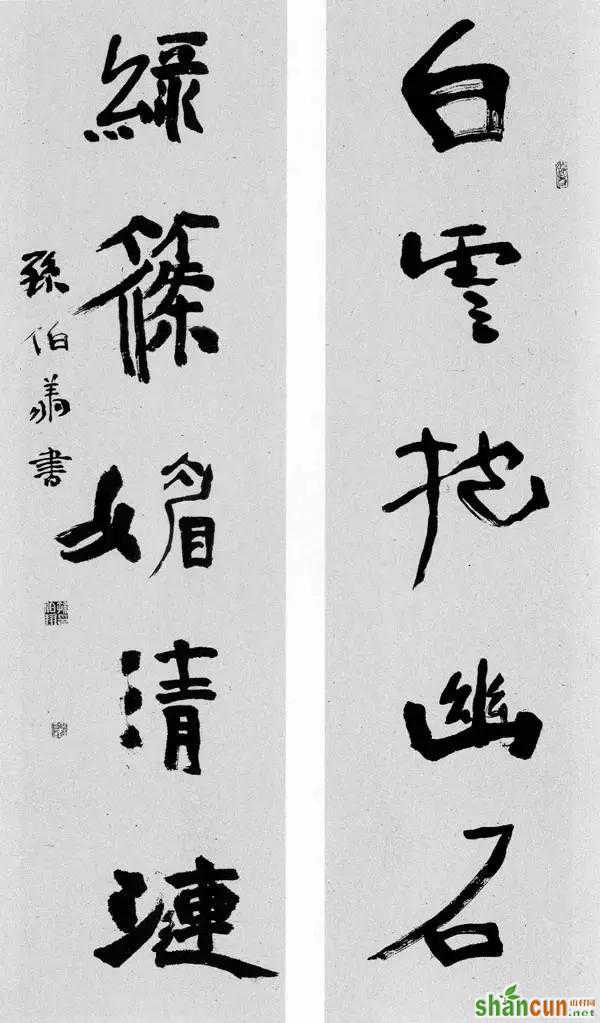 白雲抱幽石
綠篠媚清漣
孫伯翔書
shancun
山村网
.net